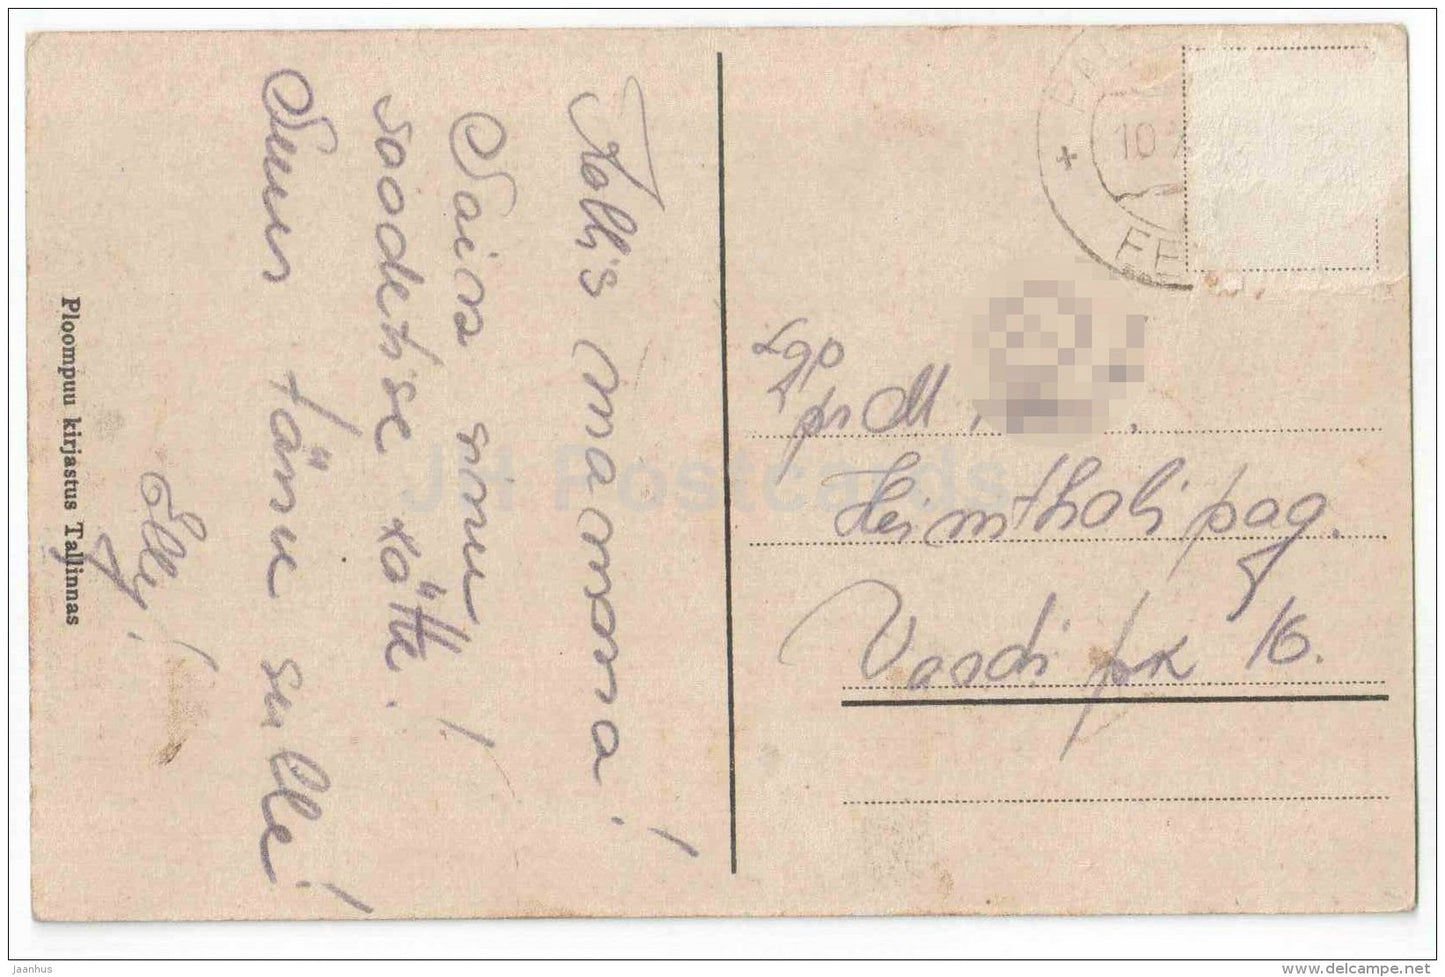 Kallis mamma!
Sain sinu
saadetise kätte.
Suur tänu sulle!
Elly!
Ploompuu kirjastus Tallinnas
10
EE
Lgp
pr M
Heimthali pag.
Vardi pk 16.
JH Postcards
jaanhus
www.delcampe.net